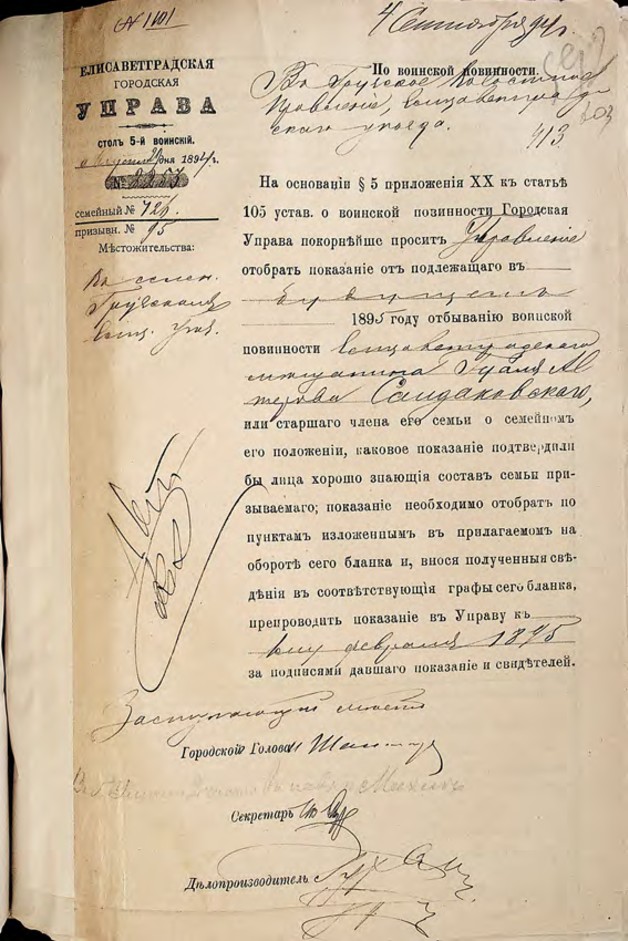 № 1101
4 Сентября 94 г.
ЕЛИСАВЕТГРАДСКАЯ
ГОРОДСКАЯ
УПРАВА
СТОЛЪ 5-й ВОИНСКІЙ.
дня 1894 г.
№ 2257
семейный № 726.
призывн. № 95
Мѣстожительства:
Въ селен.
Грузскомъ
Елис. уѣз.
По воинской повинности.
Въ Грузское Волостное
Правленіе, Елисаветград-
скаго уѣзда.
413
На основаніи § 5 приложенія XX къ статьѣ
105 устав. о воинской повинности Городская
Управа покорнѣйше проситъ Правленіе
отобрать показаніе отъ подлежащаго въ
будущемъ
1895 году отбыванію воинской
повинности Елисаветградскаго
мѣщанина
Сандаковскаго,
или старшаго члена его семьи о семейномъ
его положеніи, каковое показаніе подтвердили
бы лица хорошо знающія составъ семьи при-
зываемаго; показаніе необходимо отобрать по
пунктамъ изложеннымъ въ прилагаемомъ на
оборотѣ сего бланка и, внося полученныя свѣ-
дѣнія въ соотвѣтствующія графы сего бланка,
препроводить показаніе въ Управу къ
1му февраля 1895
за подписями давшаго показаніе и свидѣтелей.
Заступающій мѣсто
Городской Голова
Секретарь
Дѣлопроизводитель